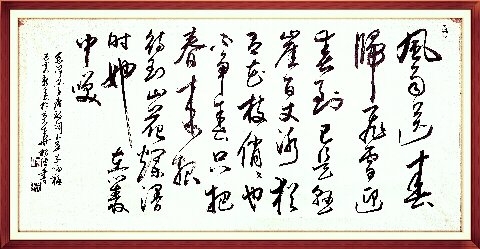 風雨送春
歸飛雪迎
春到已是懸
崖百丈冰猶
有花枝俏々也
不爭春只把
春來報
待到山花爛漫
時她在叢
中笑